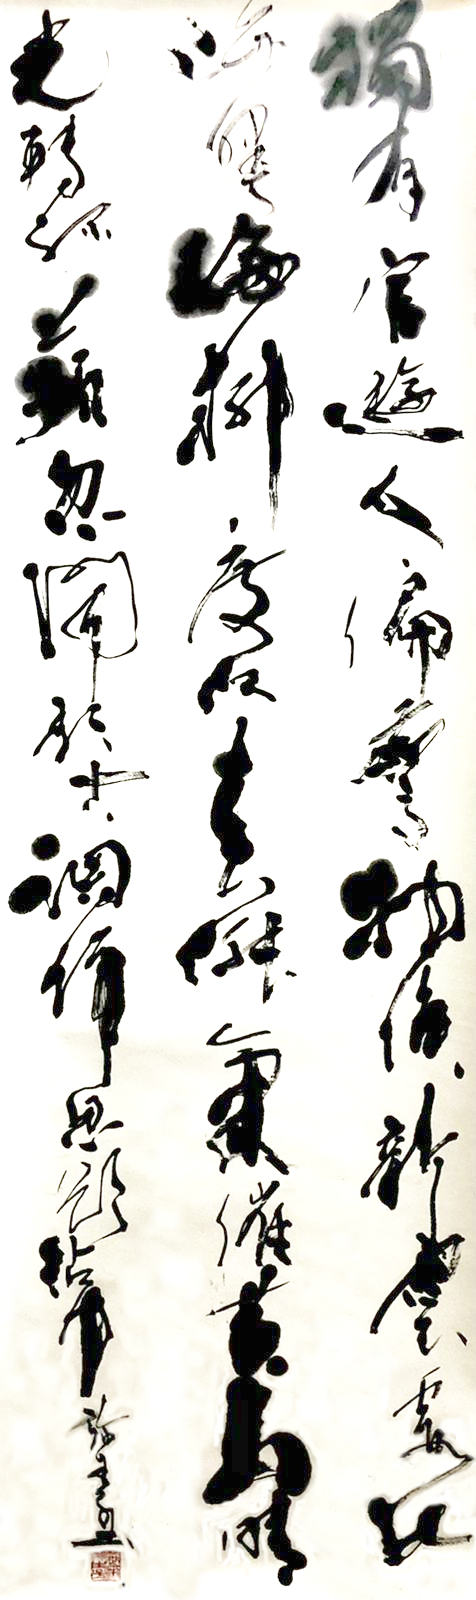 獨有宦遊人偏驚物候新雲霞出
海曙梅柳度江春淑氣催黃鳥晴
光轉綠蘋忽聞歌古調歸思欲沾巾